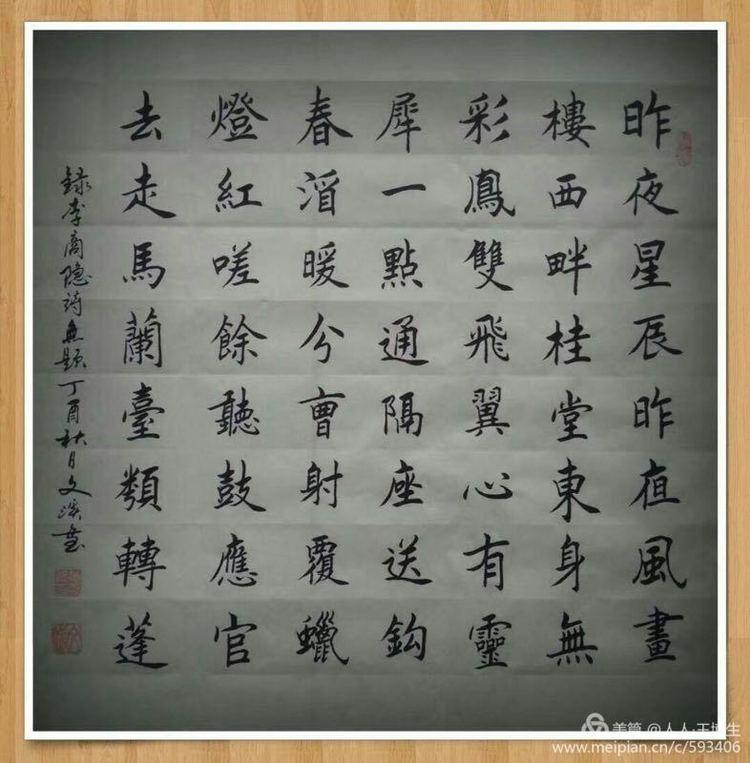 昨夜星辰昨夜風畫
樓西畔桂堂東身無
彩鳳雙飛翼心有靈
犀一點通隔座送鈎
春酒暖分曹射覆蠟
燈紅嗟餘聽鼓應官
去走馬蘭臺類轉蓬
録李商隐詩無題丁酉秋月文書
美篇 @人人·王生
www.meipian.cn/c/593406